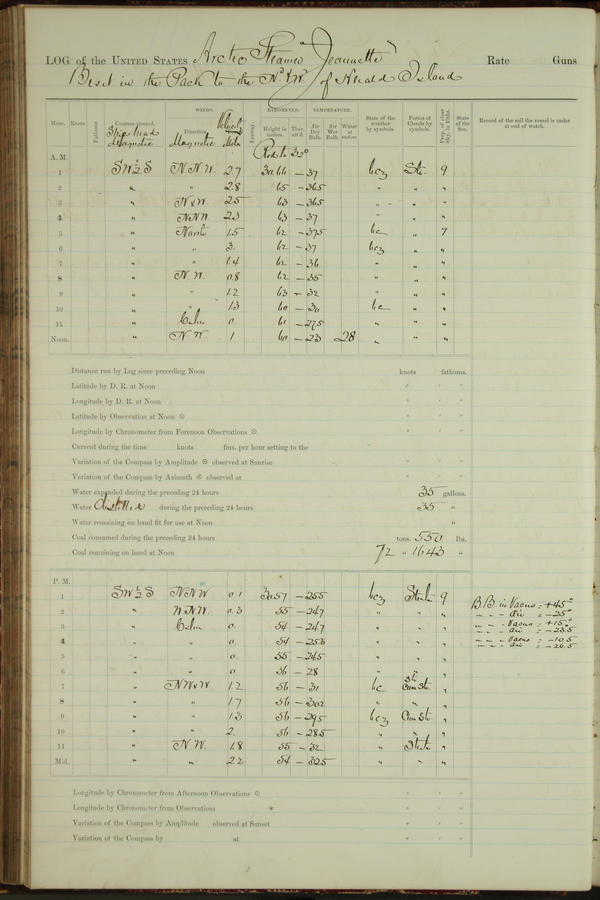 LOG of the UNITED STATES Arctic Steamer "Jeannette" Rate Guns
Beset in the Pack to the Nd & Wd of Herald Island
Hour. Knots Fathoms Courses steered. WINDS. Leeway. BAROMETER. TEMPERATURE. State of the weather by symbols. Forms of Clouds by symbols. Prop. of clear sky, in 10ths. State of the Sea. Record of the sail the vessel is under at end of watch.
Ship's head Magnetic Direction. Magnetic Velocity Miles Height in inches. Ther. att'd. Air Dry Bulb. Air Wet Bulb. Water at surface
A. M. Red to 32°
1 SW½S N.N.W. 27 30.66 -37 bcz Str. 9
2 " " 28 65 -36.5 " "
3 " N & W 25 63 -36.5 " " "
4 " NNW 23 63 -37 " " "
5 " North 1.5 62 -37.5 bc " 7
6 " " 3. 62 -37 bcz " "
7 " " 1.4 62 -36 " " "
8 " N.W. 0.8 62 -35 " " "
9 " " 1.2 63 -32 " " "
10 " " 1.3 60 -30 bc " "
11 " Calm 0. 61 -27.5 " " "
Noon. " N.W. 1 60 -23 28 " " "
Distance run by Log since preceding Noon knots fathoms.
Latitude by D. R. at Noon ° ' "
Longitude by D. R. at Noon ° ' "
Latitude by Observation at Noon ⊙ ° ' "
Longitude by Chronometer from Forenoon Observations ⊙ ° ' "
Current during the time knots fms. per hour setting to the
Variation of the Compass by Amplitude ⊙ observed at Sunrise ° ' "
Variation of the Compass by Azimuth ⊙ observed at ° ' "
Water expended during the preceding 24 hours 35 gallons.
Water distilled during the preceding 24 hours 35 "
Water remaining on hand fit for use at Noon "
Coal consumed during the preceding 24 hours tons. 550 lbs.
Coal remaining on hand at Noon 72 " 1643 "
P. M.
1 SW½S NNW 0.1 30.57 -25.5 bcz 9
2 " WNW. 0.3 55 -24.7 " " "
3 " Calm 0. 54 -24.7 " " "
4 " " 0. 54 -25.8 " " "
5 " " 0. 55 -24.5 " " "
6 " " 0. 56 -28 " " "
7 " NW&W 1.2 56 -31 bc St. Cum St. "
8 " " 1.7 56 -30.2 " " "
9 " " 1.3 56 -29.5 bcz Cum St. "
10 " " 2. 56 -28.5 " " "
11 " N.W. 1.8 55 -32 " "
Mid. " " 2.2 54 -32.5 " " "
BB in Vacuo = +45°
" " air = -25°
" " Vacuo = +15°
" " air = -23.5
" " Vacuo = -10.5
" " air = -26.5
Longitude by Chronometer from Afternoon Observations ⊙ ° ' "
Longitude by Chronometer from Observations * ° ' "
Variation of the Compass by Amplitude observed at Sunset ° ' "
Variation of the Compass by at ° ' "